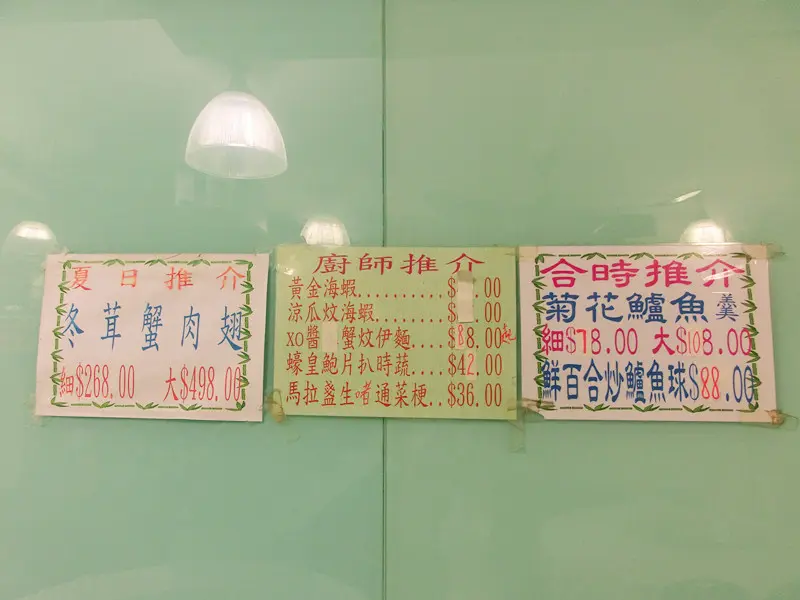 夏日推介
冬茸蟹肉翅
細$268.00 大$498.00
廚師推介
黃金海蝦..........$ .00
涼瓜炆海蝦........$ .00
XO醬 蟹炆伊麵....$88.00起
蠔皇鮑片扒時蔬....$42.00
馬拉盞生啫通菜梗..$36.00
合時推介
菊花鱸魚羹
細$78.00 大$108.00
鮮百合炒鱸魚球$88.00